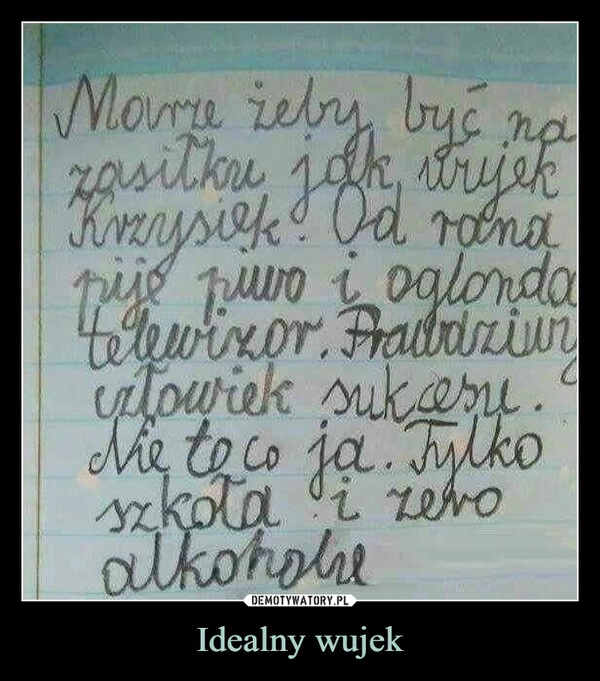 Marze żeby być na
zasiłku jak wujek
Krzysiek. Od rana
pije piwo i oglonda
telewizor. Prawdziwy
człowiek sukcesu.
Nie to co ja. Tylko
szkoła i zero
alkoholu
DEMOTYWATORY.PL
Idealny wujek